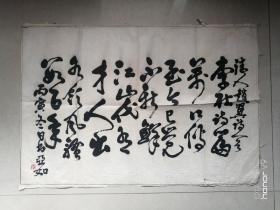 清人趙翼詩一首
李杜詩篇
萬口傳
至今已覺
不新鮮
江山代有
才人出
各領風騷
數百年
丙寅冬月亞如
honor